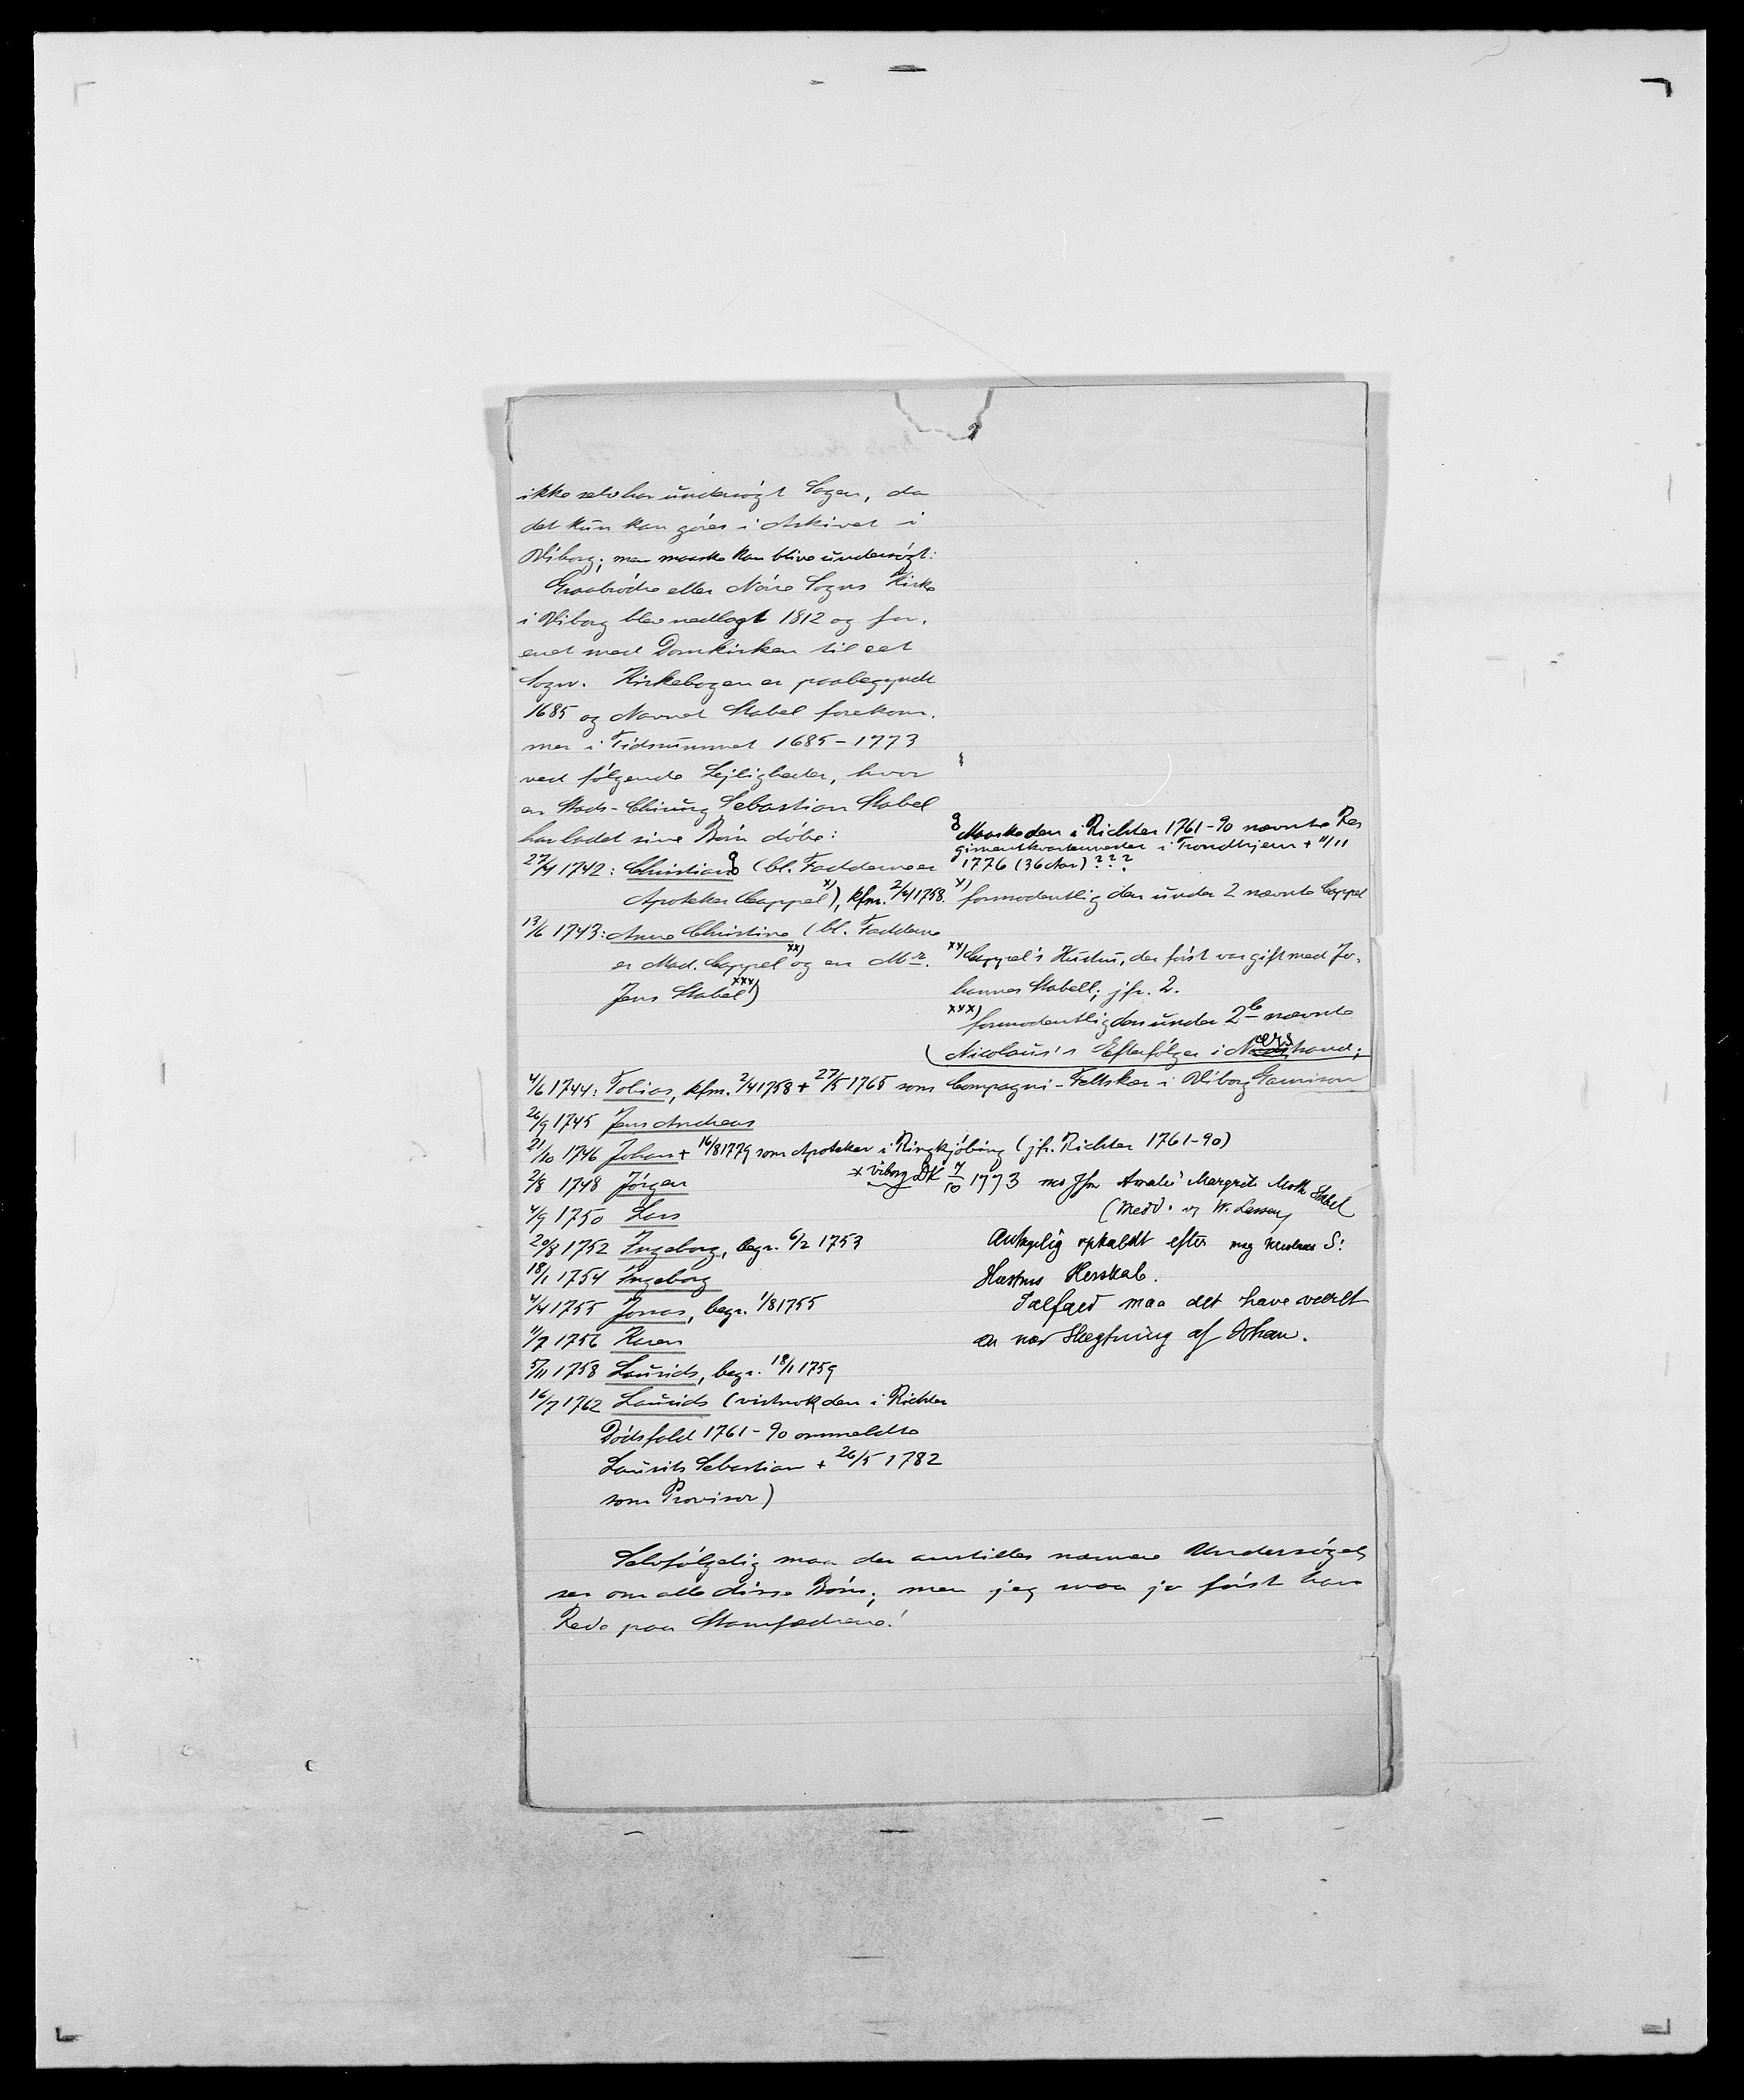 ikke selv har undersögt Sagen, da
det kun kan göres i Arkivet i
Viborg; men maaske kan blive undersögt:
Graabrödre eller Nörre Sogns Kirke
i Viborg blev nedlagt 1812 og for-
enet med Domkirken til eet
Sogn. Kirkebogen er paabegyndt
1685 og Navnet Stabel forekom-
mer i Tidsrummet 1685-1773
ved fölgende Lejligheder, hvor
en Stads-Chirurg Sebastian Stabel
har ladet sine Börn döbe:
Maaske den i Richter 1761-90 nævnte Re-
gimentkvartermester i Trondhjem + 11/11
1776 (36 Aar)???
27/4 1742: Christian (bl. Fadderne er
Apoteker Cappel x)), kfm. 2/4 1758.
x) formodentlig den under 2 nævnte Cappel
13/6 1743: Anne Christine (bl. Fadderne
er Mad. Cappel xx) og en Mr.
Jens Stabel xxx))
xx) Cappel's Hustru, der först var gift med Jo-
hannes Stabell; jfr. 2.
xxx) formodentlig den under 2b nævnte
(Nicolaus's Efterfölger i hand;
4/6 1744: Tobias, kfm. 2/4 1758 + 27/5 1765 som Compagni-Feltskær i Viborg Garnison
26/9 1745 Jens Andreas
21/10 1746 Johan + 16/8 1779 som Apoteker i Ringkjöbing (jfr. Richter 1761-90)
x Viborg DK 7/10 1773 m Jfr Amalie Margrete Moth Stabel
(Medd. v W. Lassen)
2/8 1748 Jörgen
4/9 1750 Lars
20/8 1752 Ingeborg, begr. 6/2 1753
Antagelig opkaldt efter S:
Hustrus Herskab.
18/1 1754 Ingeborg
Ialfald maa det have været
en nær Slægtning af Johan.
4/4 1755 Jonas, begr. 1/8 1755
11/7 1756 Karen
5/11 1758 Laurids, begr. 18/1 1759
16/7 1762 Laurids (vistnok den i Richter
Dödsfald 1761-90 anmeldte
Laurits Sebastian + 26/5 1782
som Provisor)
Selvfölgelig maa der anstilles nærmere Undersögel-
ser om alle disse Börn; men jeg maa jo först have
Rede paa Stamfædrene!